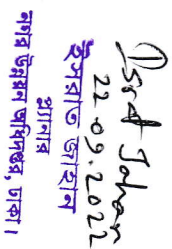 Israt Jahan
22.09.2022
ইসরাত জাহান
প্ল্যানার
নগর উন্নয়ন অধিদপ্তর, ঢাকা।